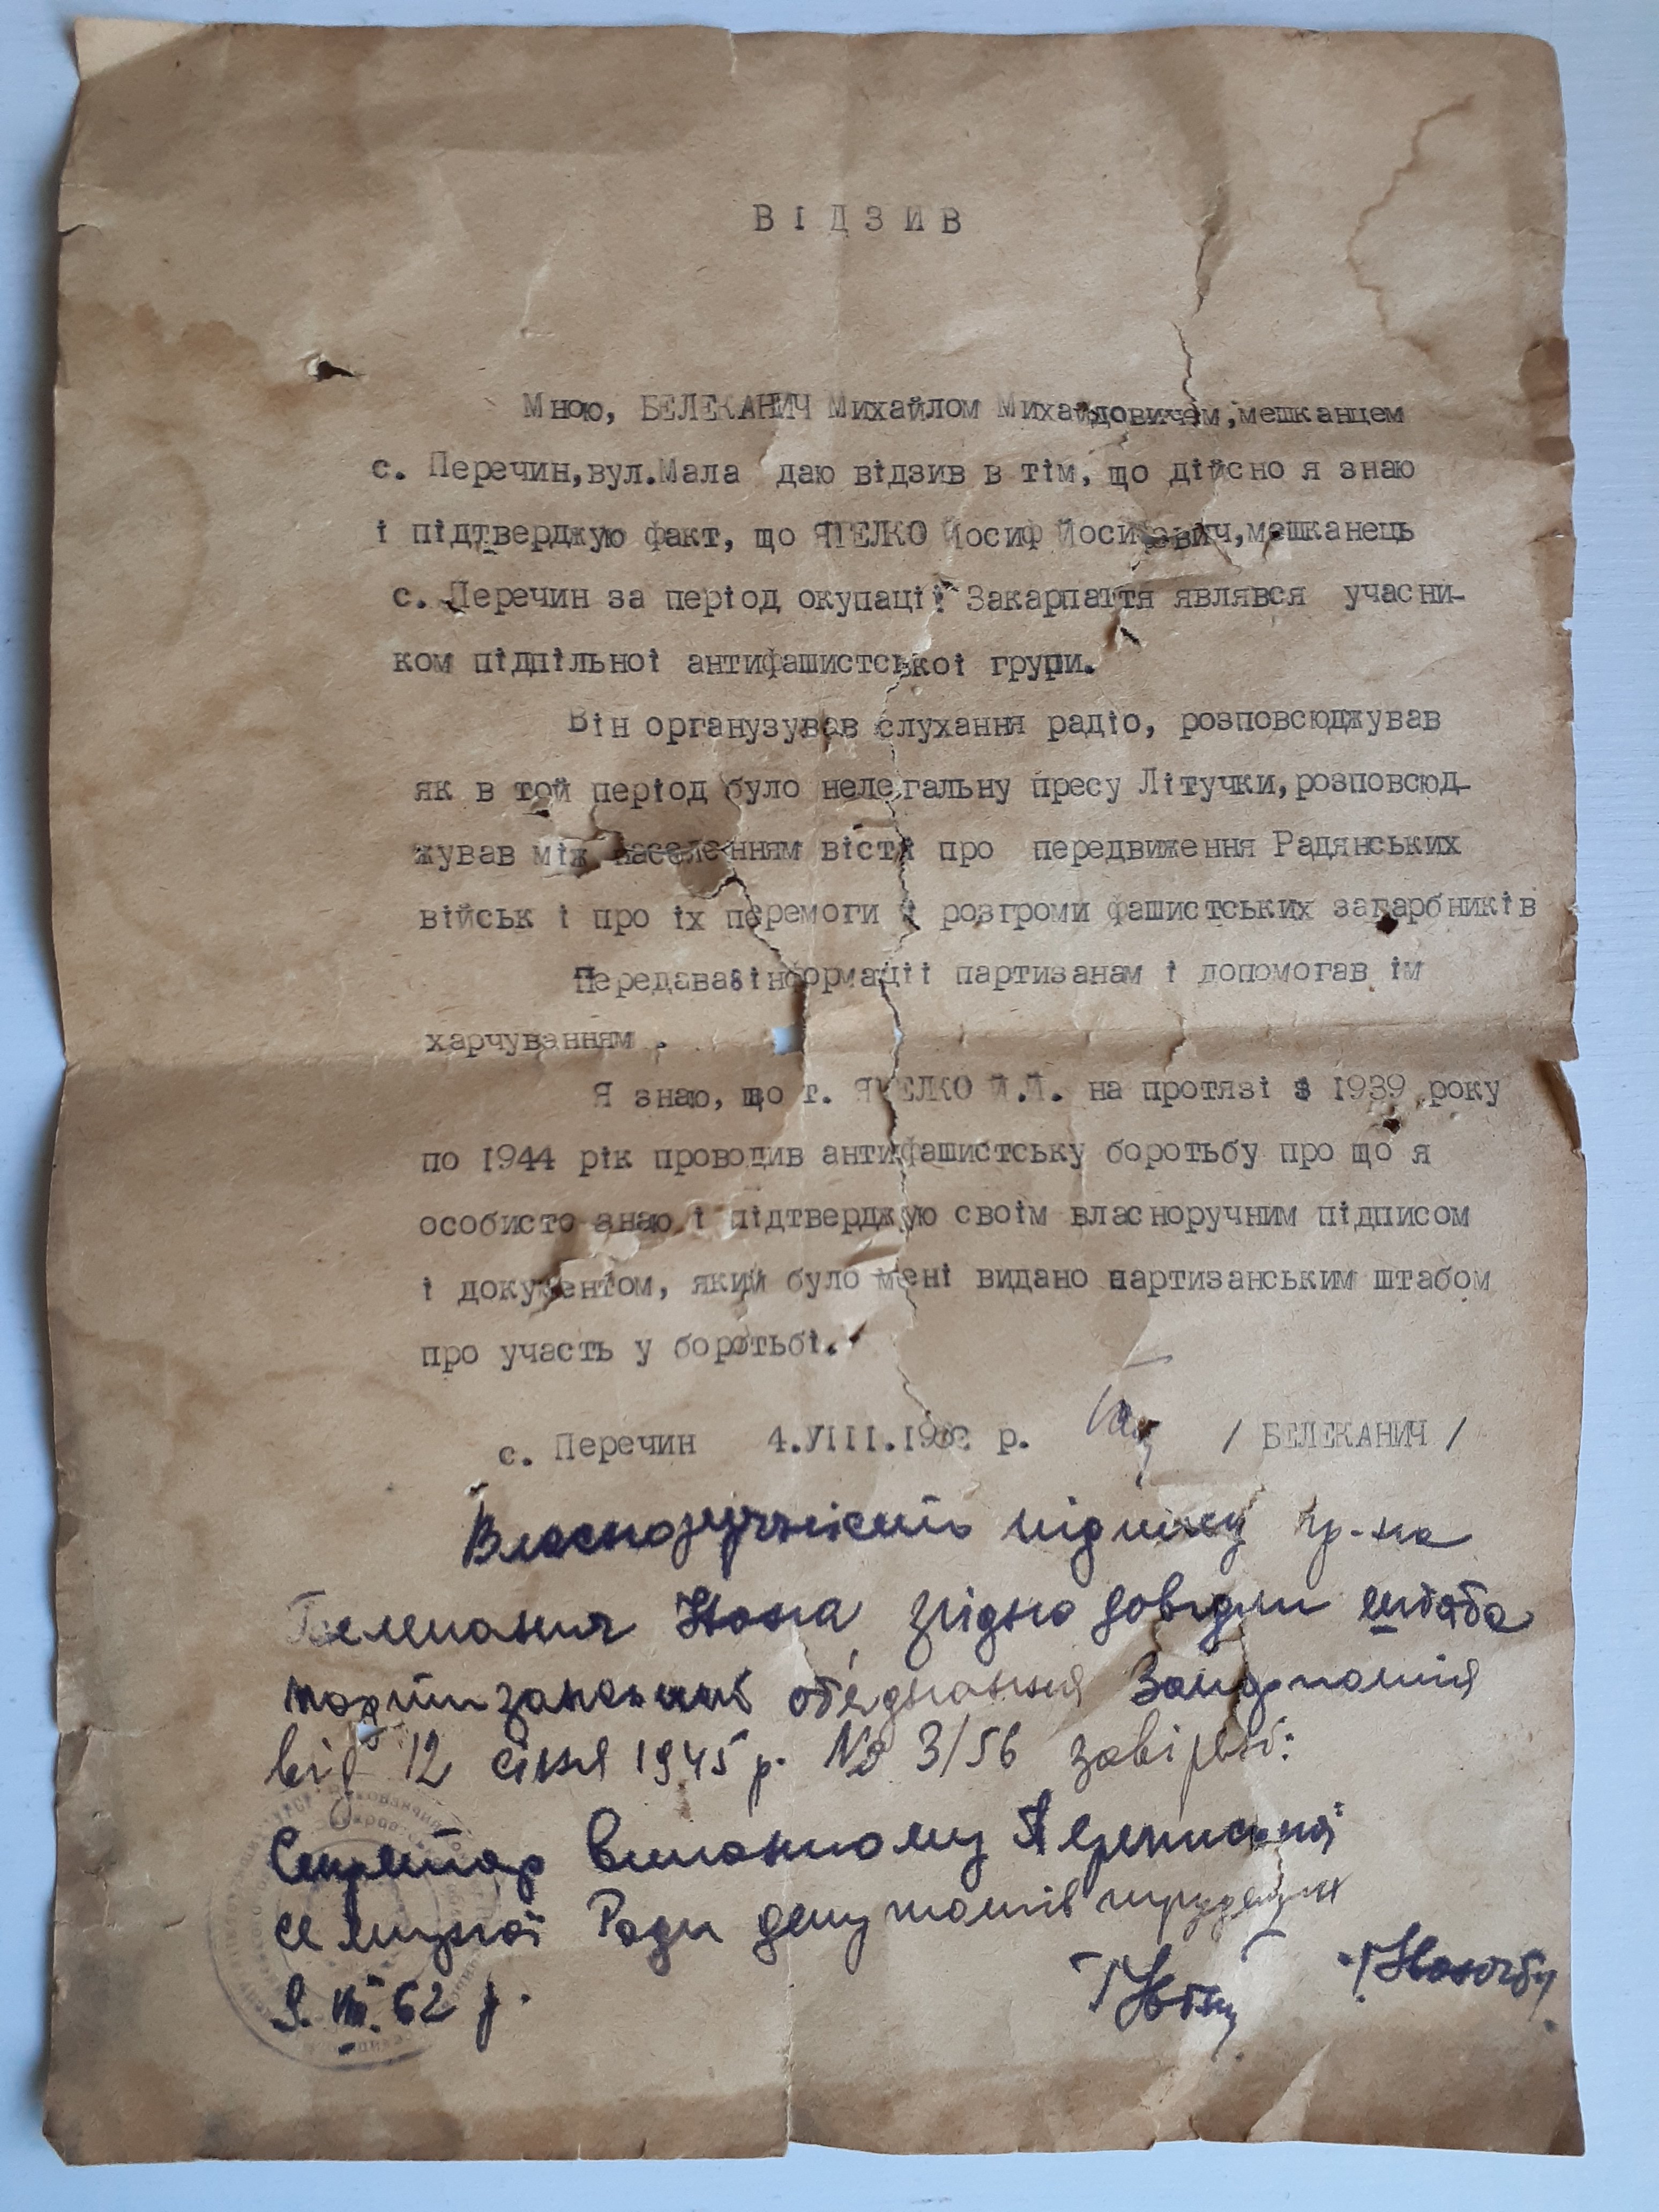 ВІДЗИВ
Мною, БЕЛЕКАНИЧ Михайлом Михайловичем, мешканцем
с. Перечин, вул. Мала даю відзив в тім, що дійсно я знаю
і підтверджую факт, що ЯГЕЛКО Йосиф Йосифович, мешканець
с. Перечин за період окупації Закарпаття являвся учасни-
ком підпільноі антифашистськоі групи.
Він органузував слухання радіо, розповсюджував
як в той період було нелегальну пресу Літучки, розповсюд-
жував між населенням вісти про передвиження Радянських
військ і про іх перемоги і розгроми фашистських загарбників
Передавав інформаціі партизанам і допомогав ім
харчуванням .
Я знаю, що т. ЯГЕЛКО Й.Й. на протязі з 1939 року
по 1944 рік проводив антифашистську боротьбу про що я
особисто знаю і підтверджую своім власноручним підписом
і документом, який було мені видано партизанським штабом
про участь у боротьбі.
с. Перечин 4.УІІІ.1962 р. / БЕЛЕКАНИЧ /
Власноручність підпису гр-на
Белеканич згідно довідки штаба
партизанських об'єднання Закарпаття
від 12 січня 1945 р. № 3/56 завіряю:
Секретар виконкому Перечинської
селищної Ради депутатів трудящих
9. VIII. 62 р.